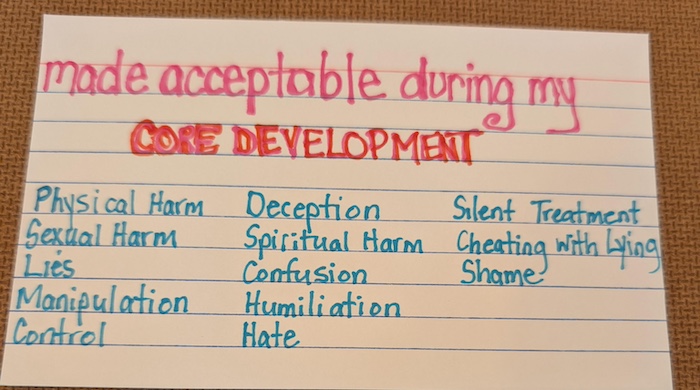 made acceptable during my
CORE DEVELOPMENT
Physical Harm
Sexual Harm
Lies
Manipulation
Control
Deception
Spiritual Harm
Confusion
Humiliation
Hate
Silent Treatment
Cheating with Lying
Shame